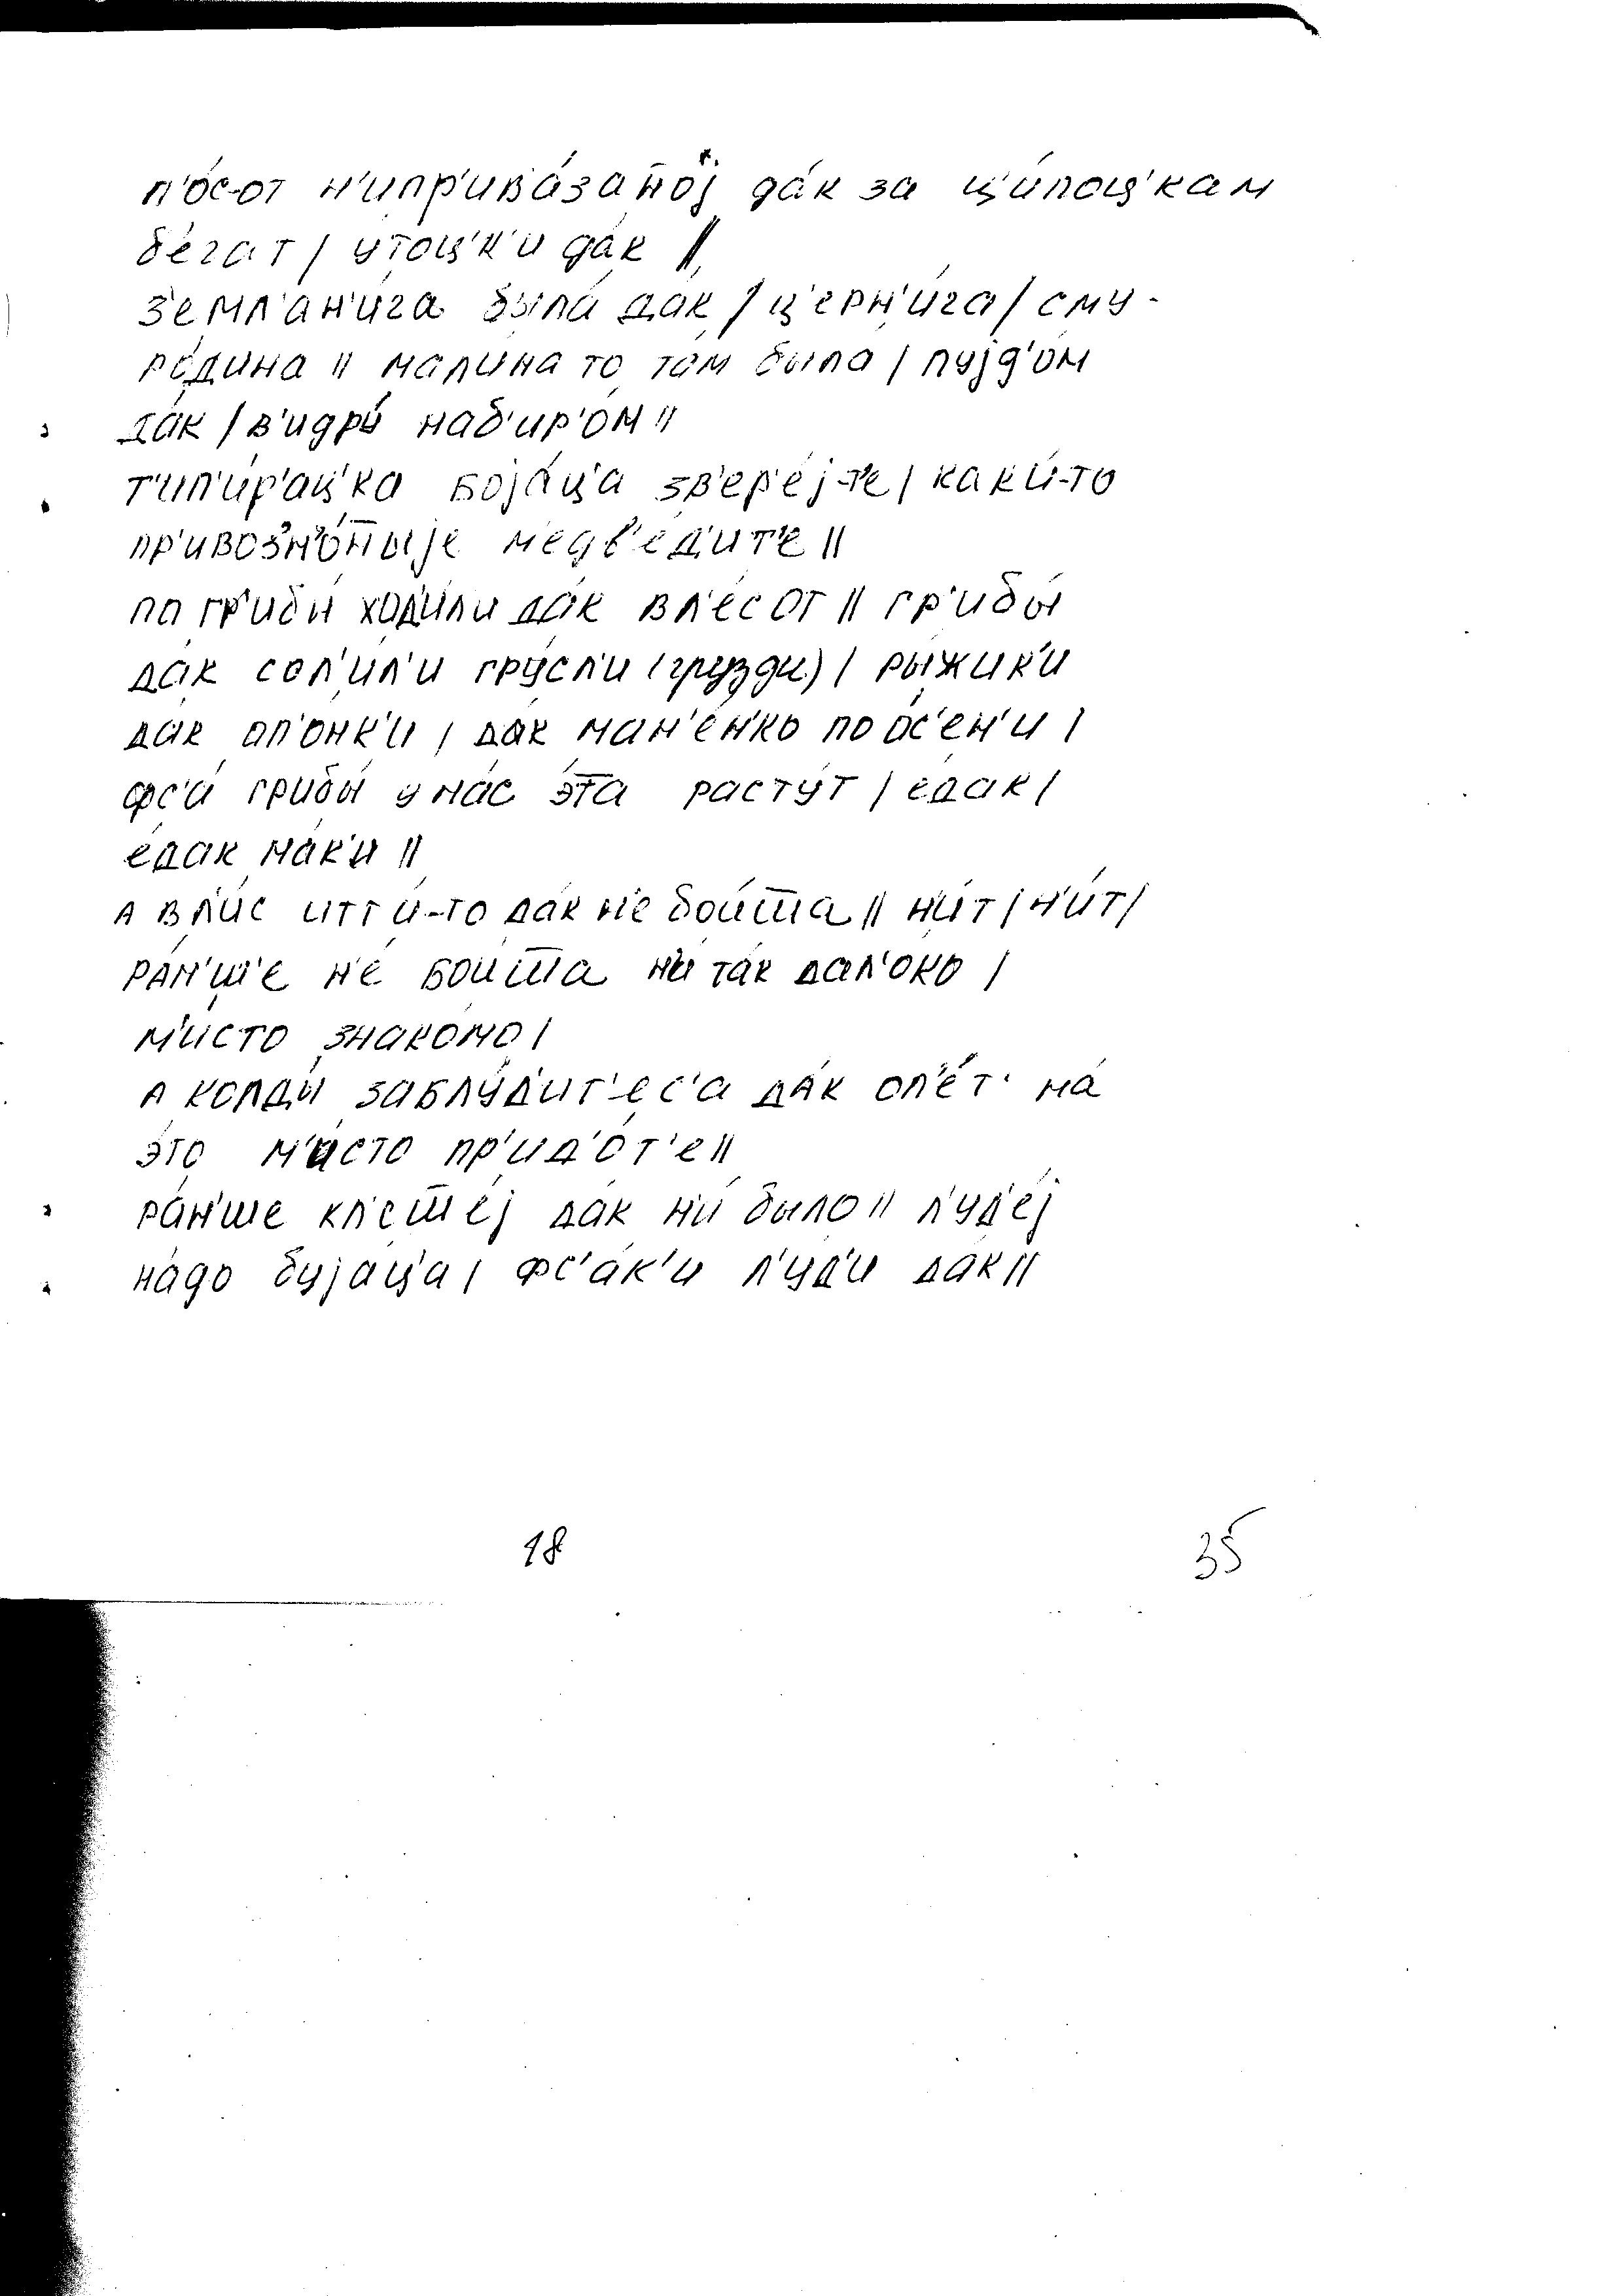 п'о́с-от н'ипр'ива́занъj да́к за ц'и́поц'кам
бе́гат / у́тоц'к'и да́к //
з'емл'ан'и́га была́ дак / ц'ерн'и́га / сму-
ро́дина // малина то там была / пуjд'о́м
да́к / в'идры́ наб'ир'о́м //
т'ип'и́р'ац'ка боја́ц'а зв'ер'е́j-те / каки́-то
пр'ивозно́ныjе медв'е́дите //
по гр'ибы́ ходи́ли да́к в л'е́с от // гр'ибы́
дак сол'и́л'и гру́сли (грузди) / ры́жик'и
дак оп'о́нк'и / дак ман'е́нко по о́с'ен'и /
фс'и́ грибы́ у на́с э́та расту́т / е́дак /
е́дак ма́к'и //
а в л'и́с итти́-то да́к не бои́шша // н'и́т / н'и́т /
ра́н'ш'е н'е́ боишша н'и́ так дал'око́ /
м'и́сто знако́мо /
а колды́ заблу́дит'ес'а да́к оп'е́т' на́
э́то м'и́сто пр'ид'о́т'е //
ра́н'ше кл'ешше́j дак н'и́ было // л'уд'е́j
на́до буја́ц'а / фс'а́к'и л'у́д'и дак //
18 35